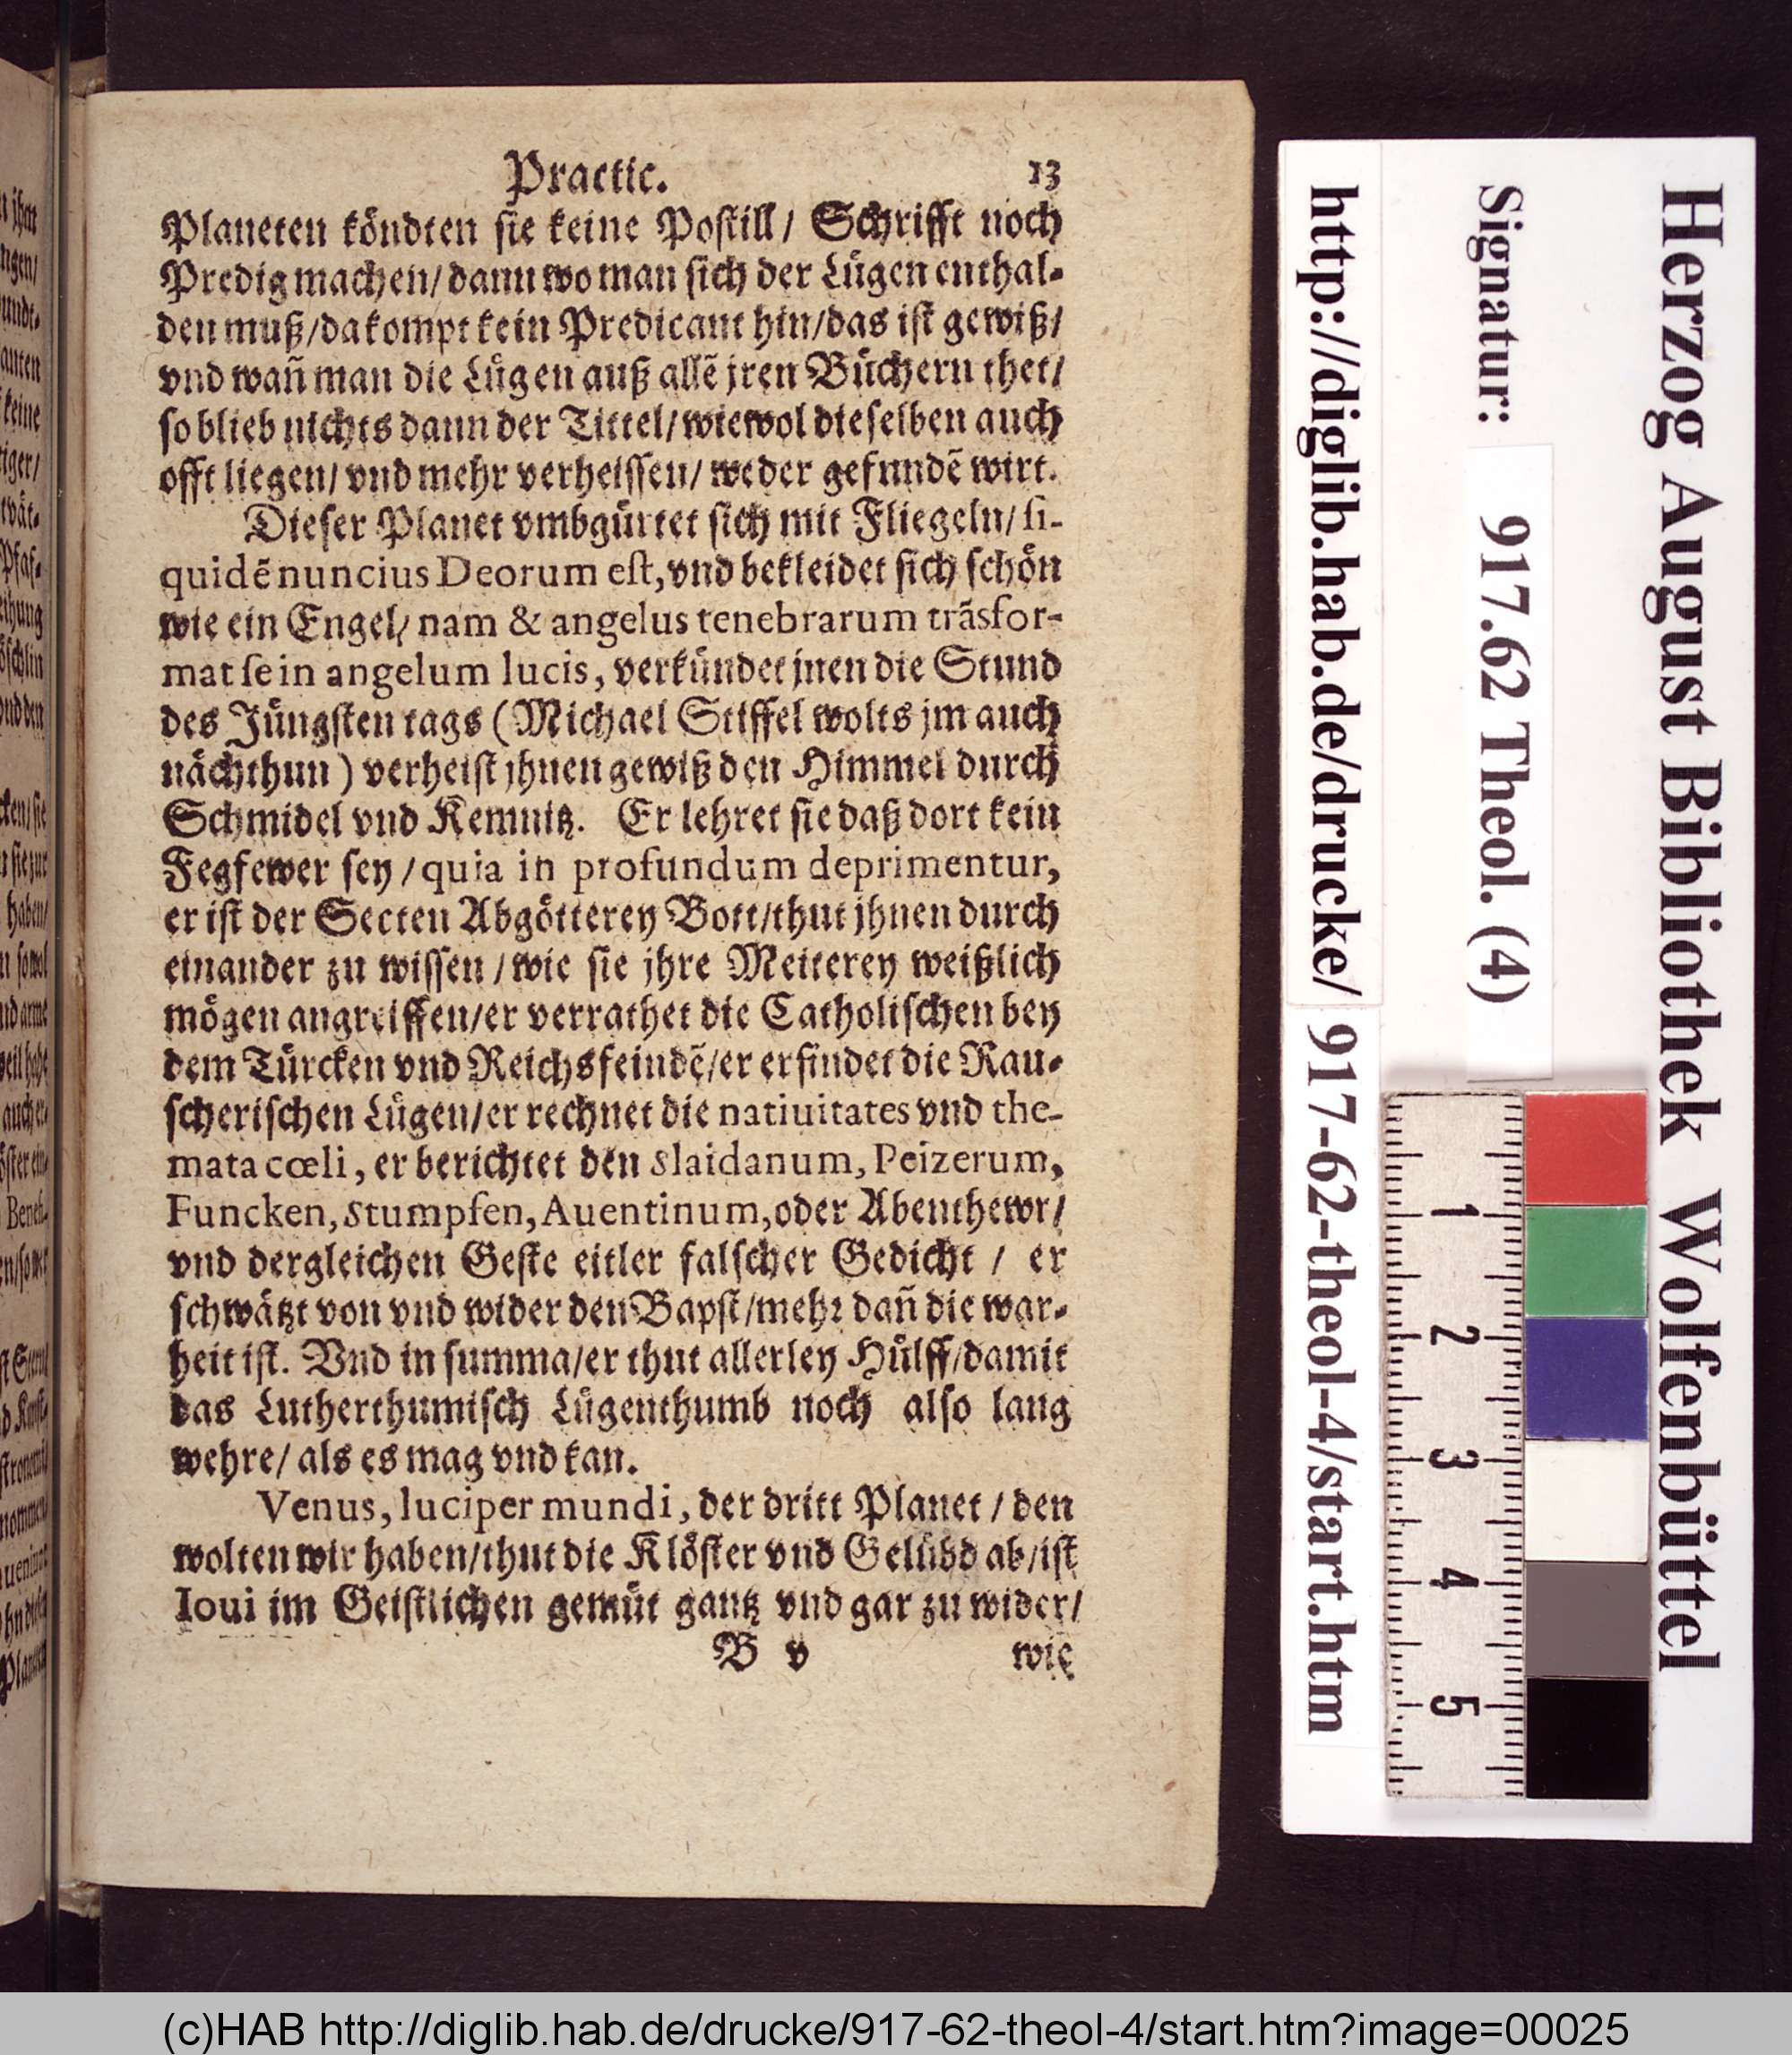 Practic. 13
Planeten köndten sie keine Postill/ Schrifft noch
Predig machen/ dann wo man sich der Lügen enthal-
den muß/da kompt kein Predicant hin/das ist gewiß/
vnd wañ man die Lügen auß allẽ jren Büchern thet/
so blieb nichts dann der Tittel/wiewol dieselben auch
offt liegen/ vnd mehr verheissen/ weder gefundẽ wirt.
Dieser Planet vmbgürtet sich mit Fliegeln/ si-
quidẽ nuncius Deorum est,vnd bekleidet sich schön
wie ein Engel/ nam & angelus tenebrarum trãsfor-
mat se in angelum lucis, verkündet jnen die Stund
des Jüngsten tags (Michael Stiffel wolts jm auch
nächthun) verheist jhnen gewiß den Himmel durch
Schmidel vnd Kemnitz. Er lehret sie daß dort kein
Fegfewer sey / quia in profundum deprimentur,
er ist der Secten Abgötterey Bott/thut jhnen durch
einander zu wissen / wie sie jhre Meiterey weißlich
mögen angreiffen/er verrathet die Catholischen bey
dem Türcken vnd Reichsfeindẽ/er erfindet die Rau-
scherischen Lügen/er rechnet die natiuitates vnd the-
mata cœli, er berichtet den Slaidanum, Peizerum,
Funcken, Stumpfen, Auentinum,oder Abenthewr/
vnd dergleichen Geste eitler falscher Gedicht / er
schwätzt von vnd wider den Bapst/mehr dañ die war-
heit ist. Vnd in summa/er thut allerley Hülff/damit
das Lutherthumisch Lügenthumb noch also lang
wehre/ als es mag vnd kan.
Venus, luciper mundi, der dritt Planet / den
wolten wir haben/thut die Klöster vnd Gelübd ab/ist
Ioui im Geistlichen gemüt gantz vnd gar zu wider/
B v wie
Herzog August Bibliothek Wolfenbüttel
Signatur: 917.62 Theol. (4)
http://diglib.hab.de/drucke/ 917-62-theol-4/start.htm
1
2
3
4
5
(c)HAB http://diglib.hab.de/drucke/917-62-theol-4/start.htm?image=00025